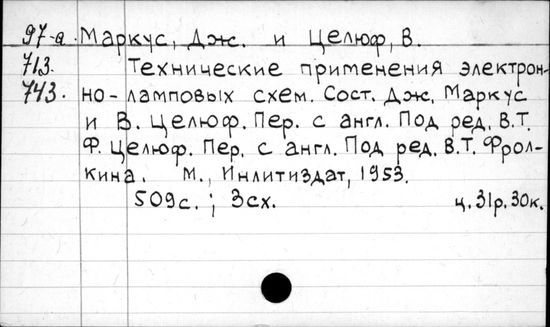 97-а Маркус, Дж. и Целюф, В.
713. Технические применения электрон-
743. но-ламповых схем. Сост. Дж. Маркус
и В. Целюф. Пер. с англ. Под ред. В.Т.
Ф. Целюф. Пер. с англ. Под ред. В.Т. Фрол-
кина. М., Инлитиздат, 1953.
509с.; 3сх. ц. 31р. 30к.